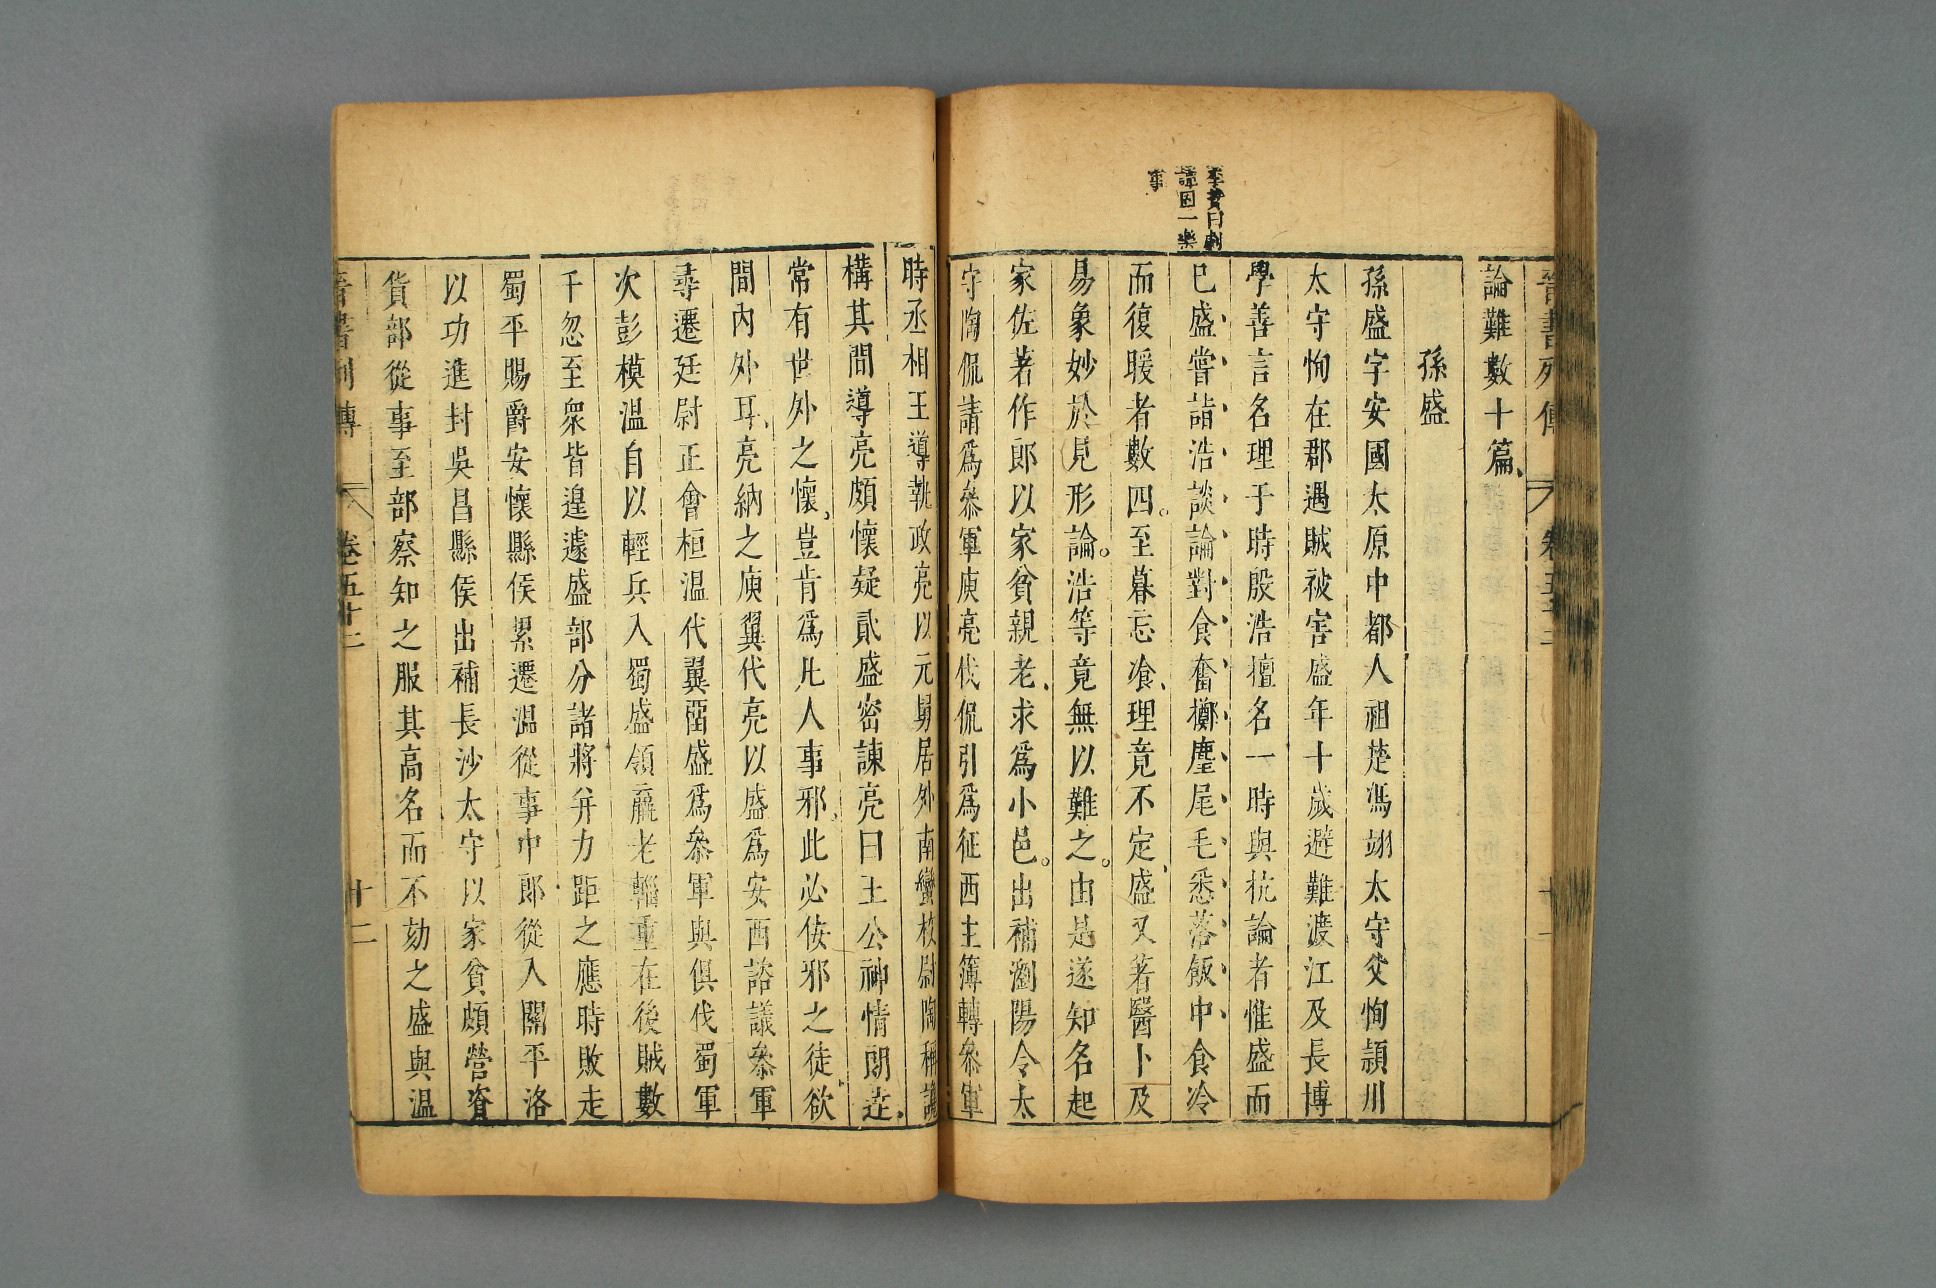 晉書列傳
卷五十二
論難數十篇
孫盛
孫盛字安國太原中都人祖楚馮翊太守父恂潁川
太守恂在郡遇賊被害盛年十歲避難渡江及長博
學善言名理于時殷浩擅名一時與抗論者惟盛而
已盛嘗詣浩談論對食奮擲麈尾毛悉落飯中食冷
而復暖者數四。至暮忘飡、理竟不定、盛又著醫卜及
易象妙於見形論。浩等竟無以難之。由是遂知名起
家佐著作郎以家貧親老、求爲小邑。出補瀏陽令太
守陶侃請爲參軍庾亮代侃引爲征西主簿轉參軍
李贄曰劇
譚因一樂
事
時丞相王導執政亮以元舅居外南蠻校尉陶稱讒
構其間導亮頗懷疑貳盛密諫亮曰王公神情朗達、
常有世外之懷、豈肯爲凡人事邪、此必佞邪之徒、欲
間內外耳、亮納之庾翼代亮以盛爲安西諮議參軍
尋遷廷尉正會桓温代翼畱盛爲參軍與俱伐蜀軍
次彭模温自以輕兵入蜀盛領羸老輜重在後賊數
千忽至衆皆遑遽盛部分諸將并力距之應時敗走
蜀平賜爵安懷縣侯累遷温從事中郎從入關平洛
以功進封吳昌縣侯出補長沙太守以家貧頗營資
貨部從事至部察知之服其高名而不劾之盛與温
晉書列傳
卷五十二
十二